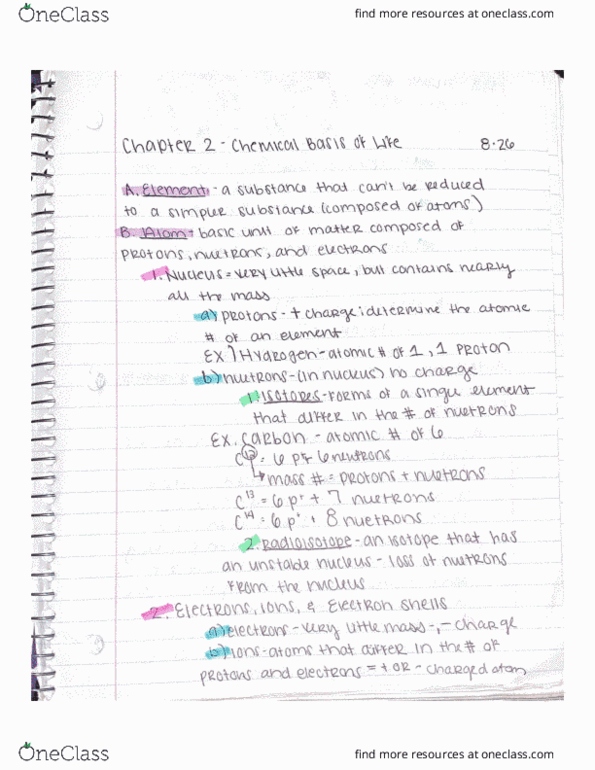 OneClass
find more resources at oneclass.com
Chapter 2 - Chemical Basis of Life 8.26
A. Element: - a substance that can't be reduced
to a simpler substance (composed of atoms)
B. Atom - basic unit of matter composed of
protons, nuetrons, and electrons
1. Nucleus = very little space, but contains nearly
all the mass
a) protons - + charge: determine the atomic
# of an element
EX) Hydrogen - atomic # of 1, 1 proton
b) nuetrons - (in nucleus) no charge
1. isotopes - forms of a single element
that differ in the # of nuetrons
EX. Carbon - atomic # of 6
C12 = 6 p+ 6 neutrons
↳ mass # = protons + nuetrons
C13 = 6 p+ + 7 nuetrons
C14 = 6 p+ + 8 nuetrons
2. radioisotope - an isotope that has
an unstable nucleus - loss of nuetrons
from the nucleus
2. Electrons, Ions, & Electron shells
a) electrons - very little mass -, - charge
b) ions - atoms that differ in the # of
protons and electrons = + or - charged atom
OneClass
find more resources at oneclass.com